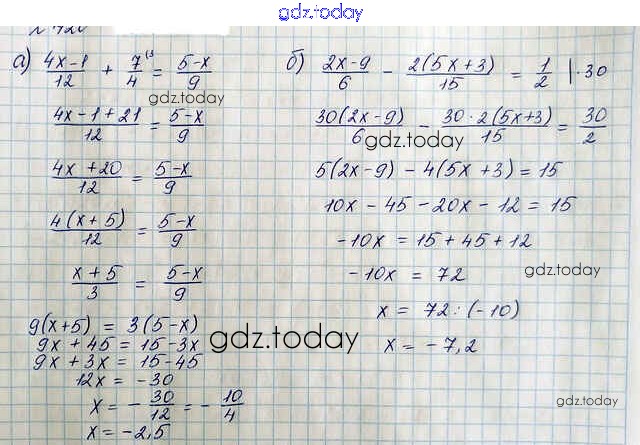 gdz.today
а) (4x-1)/12 + 7/4 ⁽³ = (5-x)/9
gdz.today
(4x-1+21)/12 = (5-x)/9
(4x+20)/12 = (5-x)/9
4(x+5)/12 = (5-x)/9
(x+5)/3 = (5-x)/9
9(x+5) = 3(5-x)
9x + 45 = 15-3x
9x + 3x = 15-45
12x = -30
x = -30/12 = -10/4
x = -2,5
gdz.today
б) (2x-9)/6 - 2(5x+3)/15 = 1/2 |·30
30(2x-9)/6 - 30·2(5x+3)/15 = 30/2
gdz.today
5(2x-9) - 4(5x+3) = 15
10x - 45 - 20x - 12 = 15
-10x = 15 + 45 + 12
-10x = 72
gdz.today
x = 72 : (-10)
x = -7,2
gdz.today